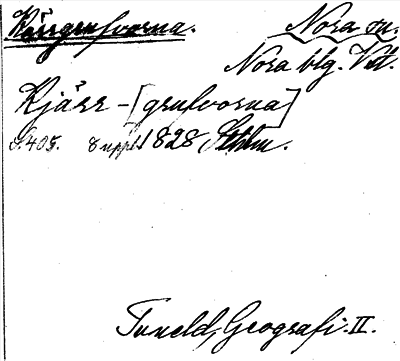 Kärrgrufvorna. Nora sn.
Nora blg. Vstl.
Kjärr-[grufvorna]
s. 405. 8 uppl. 1828 Sthlm.
Tuneld, Geografi. II.